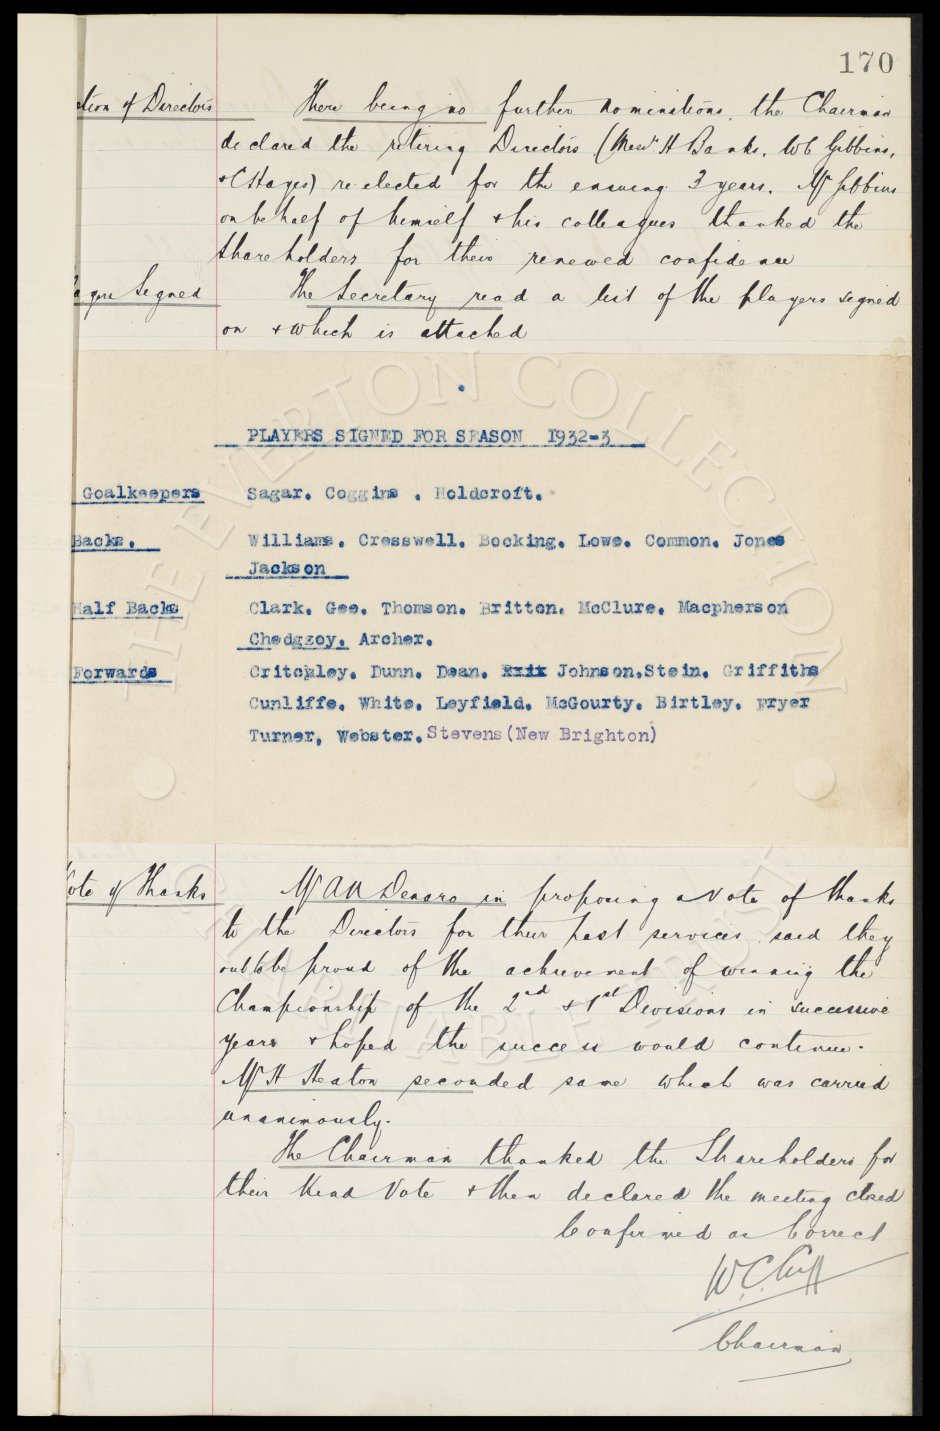 170
ction of Directors There being no further nominations, the Chairman
declared the retiring Directors (Messrs H Banks, WC Gibbins,
& C Hayes) re-elected for the ensuing 3 years. Mr Gibbins
on behalf of himself & his colleagues thanked the
Shareholders for their renewed confidence
ayers Signed The Secretary read a list of the players signed
on & which is attached
PLAYERS SIGNED FOR SEASON 1932-3
Goalkeepers Sagar. Coggins . Holdcroft.
Backs. Williams. Cresswell. Bocking. Lowe. Common. Jones
Jackson
Half Backs Clark. Gee. Thomson. Britton. McClure. Macpherson
Chedgzoy. Archer.
Forwards Critchley. Dunn. Dean. Johnson.Stein. Griffiths
Cunliffe. White. Leyfield. McGourty. Birtley. pryer
Turner, Webster. Stevens(New Brighton)
Vote of Thanks Mr in proposing a Vote of thanks
to the Directors for their past services said they
be proud of the achievement of winning the
Championship of the 2nd & 1st Divisions in successive
years & hoped the success would continue.
Mr H Heaton seconded same which was carried
unanimously.
The Chairman thanked the Shareholders for
their Kind Vote & then declared the meeting closed
Confirmed as Correct
W.C. Cuff
Chairman
THE EVERTON COLLECTION
CHARITABLE TRUST